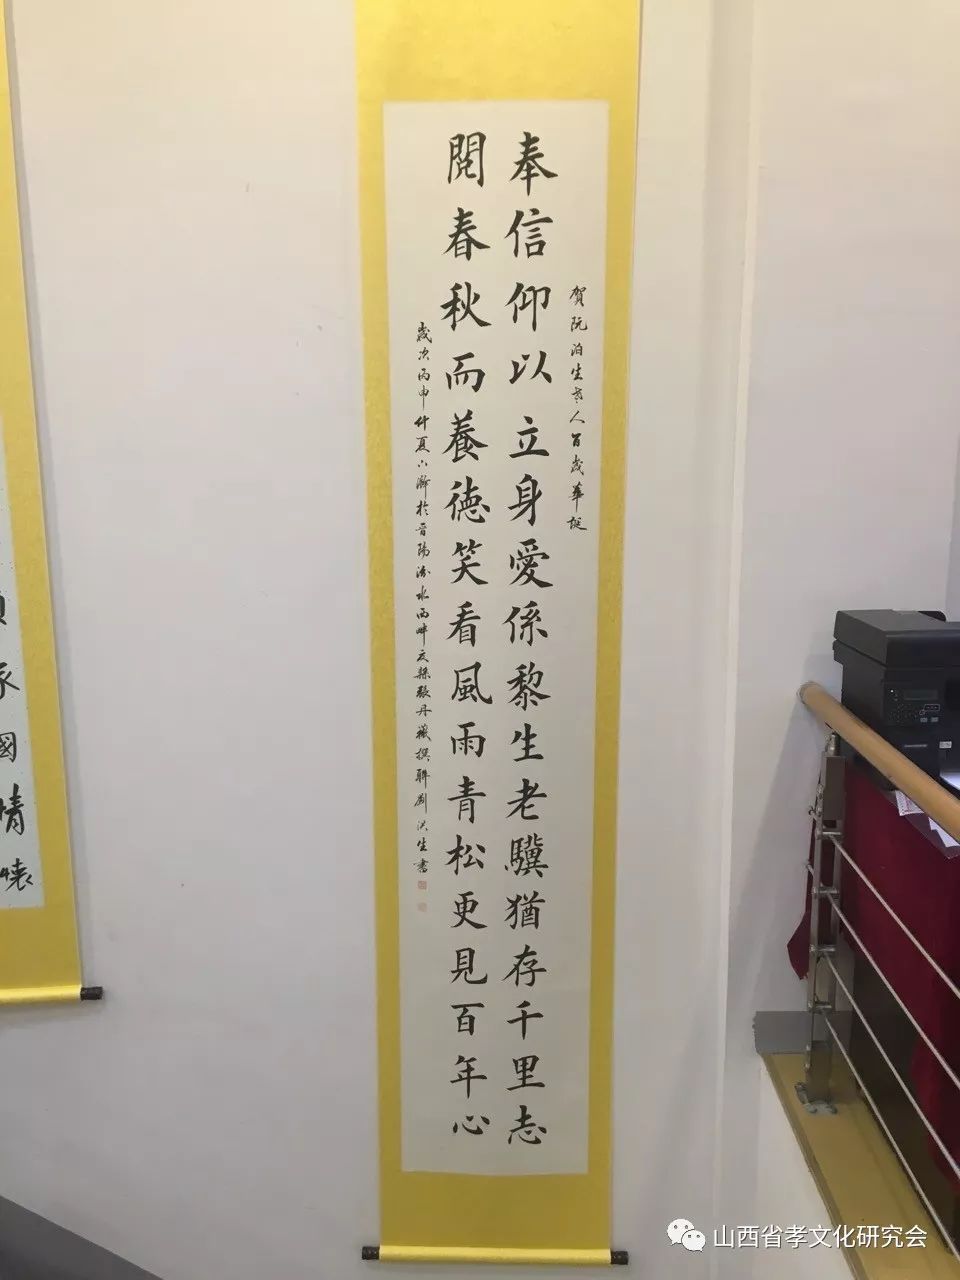 賀阮泊生老人百歲華誕
奉信仰以立身愛係黎生老驥猶存千里志
閱春秋而養德笑看風雨青松更見百年心
歲次丙申仲夏六澣於晉陽汾水西畔文縣張丹藏撰聯劉洪生書
承國情懷
山西省孝文化研究会